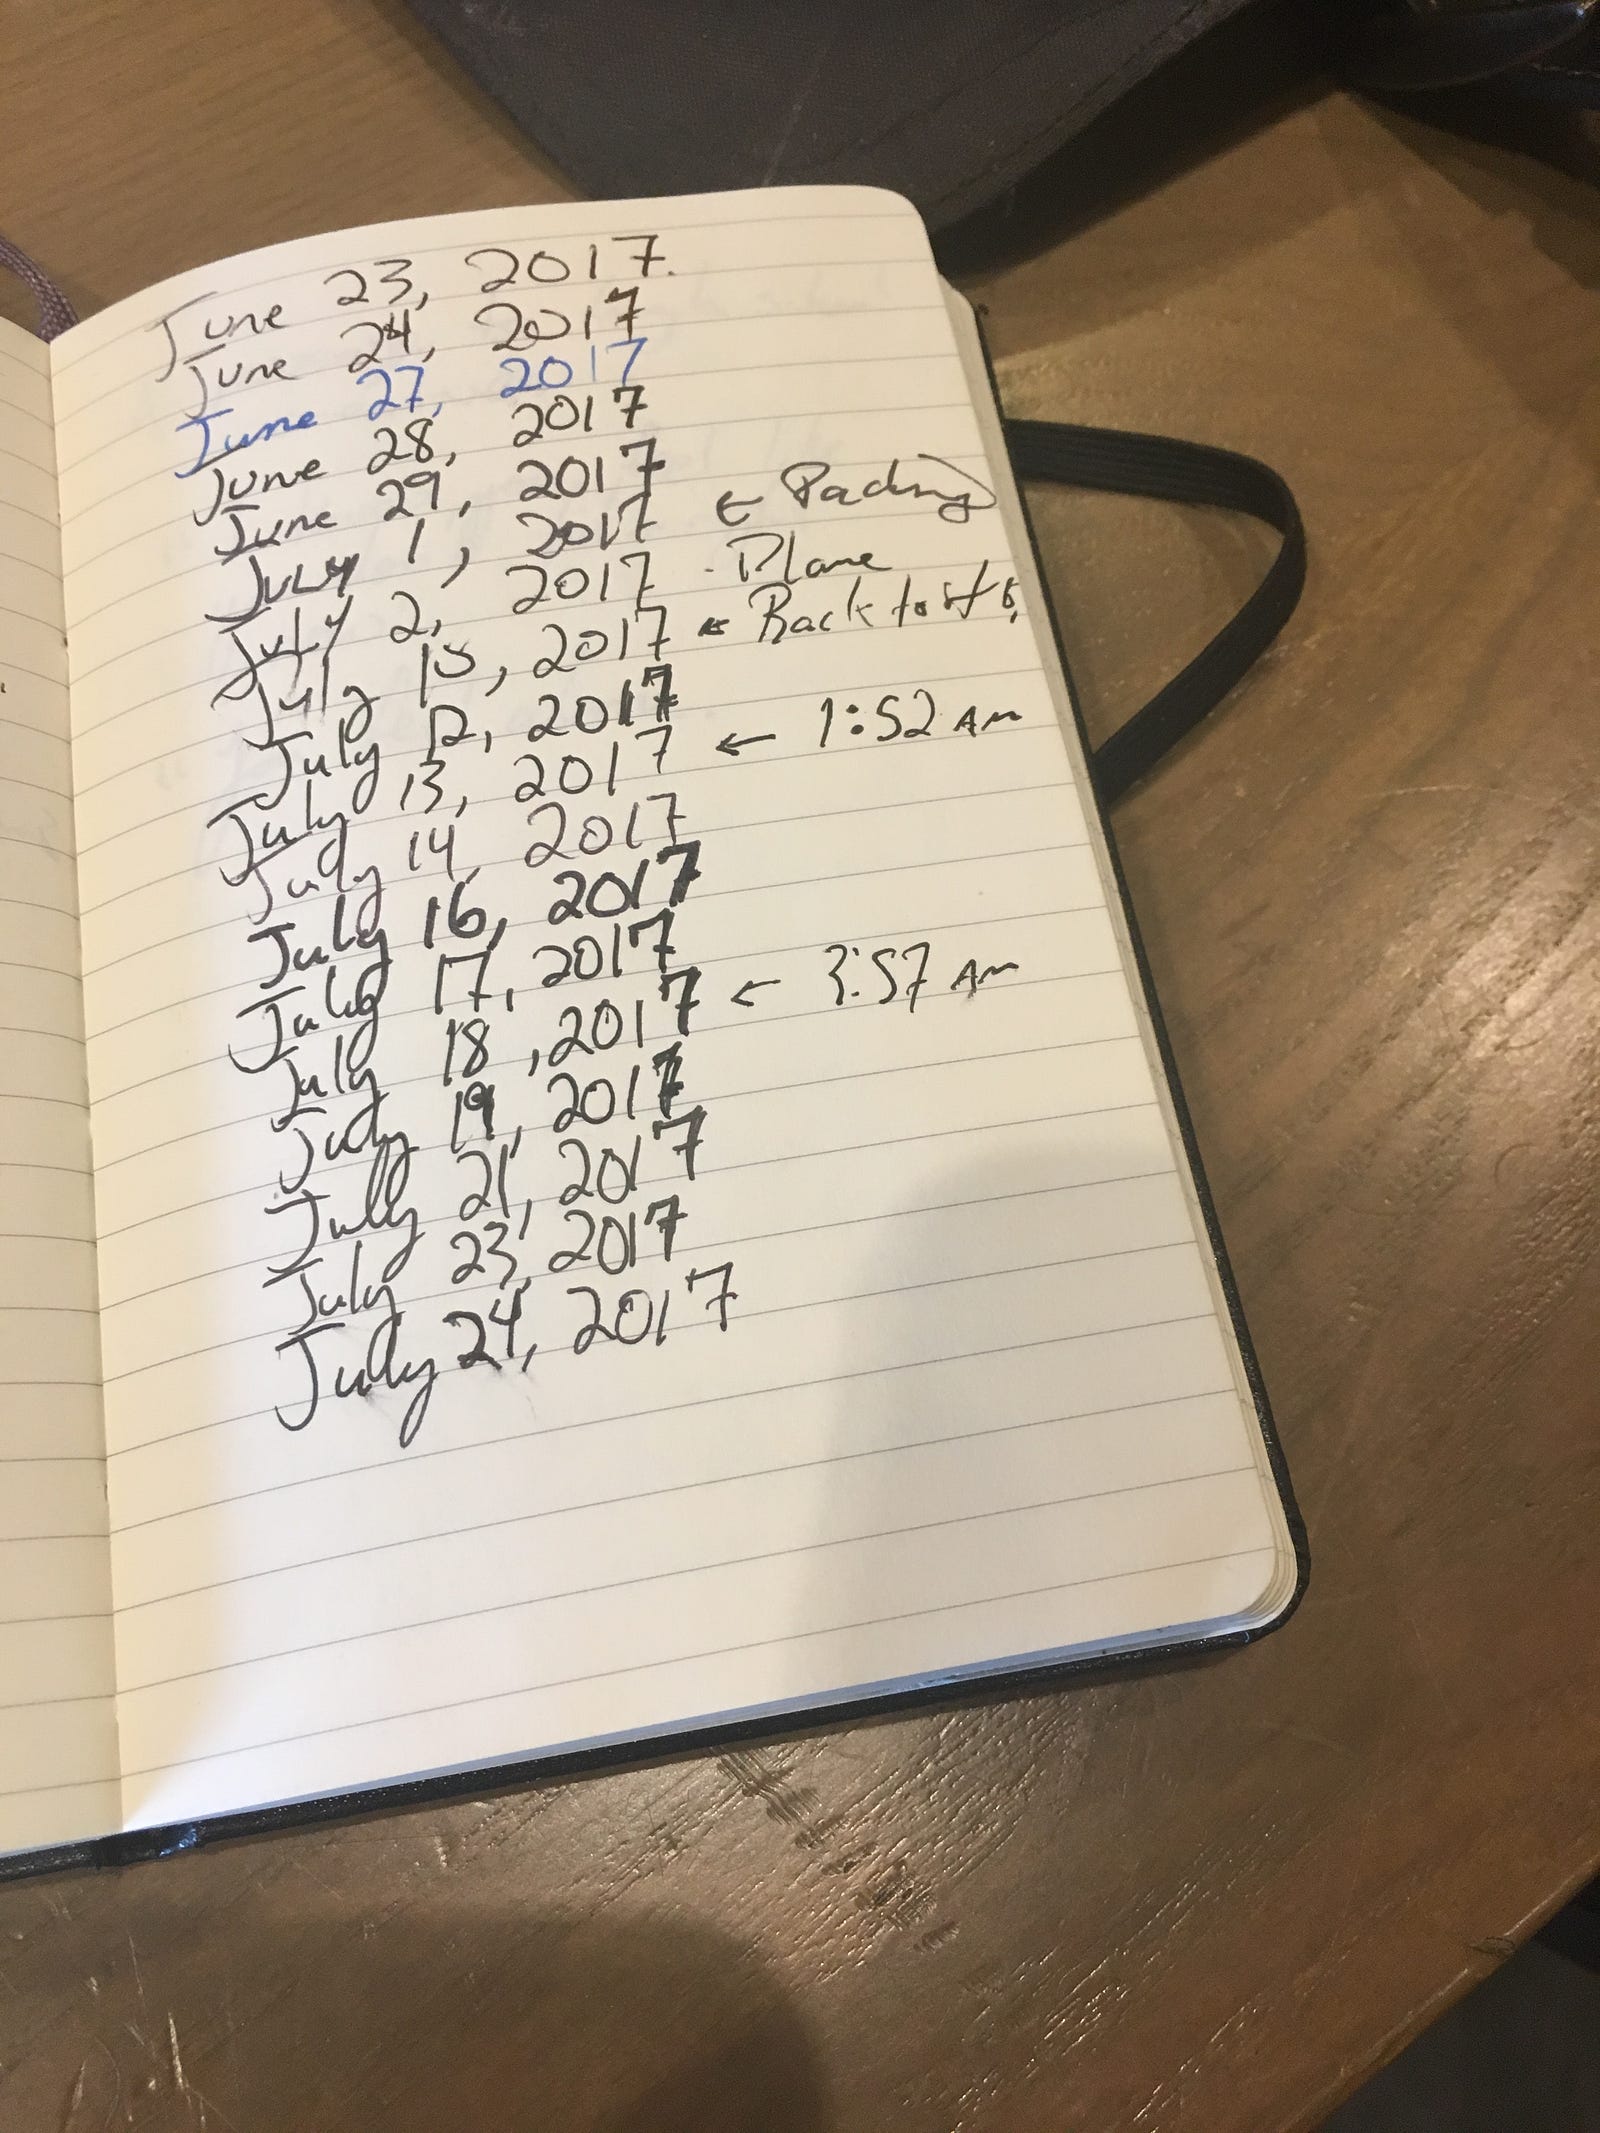 June 23, 2017.
June 24, 2017
June 27, 2017
June 28, 2017
June 29, 2017
July 1, 2017 ← Packing
July 2, 2017 - Plane
July 2017 ← Back to
July 12, 2017
July 13, 2017 ← 1:52 AM
July 14, 2017
July 16, 2017
July 17, 2017
July 18, 2017 ← 3:57 AM
July 19, 2017
July 21, 2017
July 23, 2017
July 24, 2017